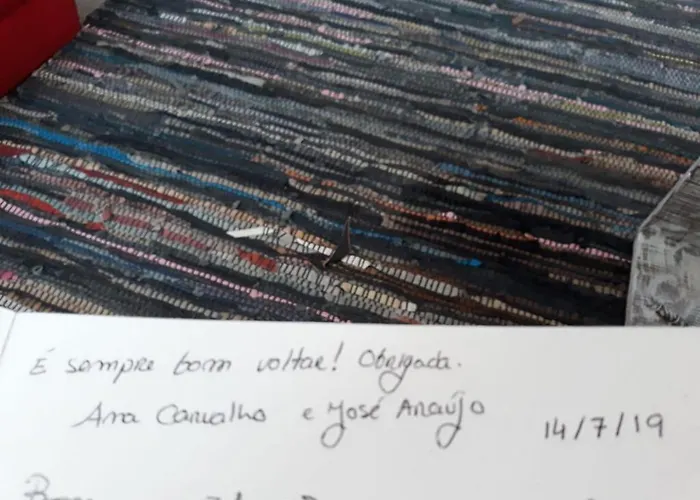 É sempre bom voltar! Obrigada.
Ana Carvalho e José Araújo
14/7/19